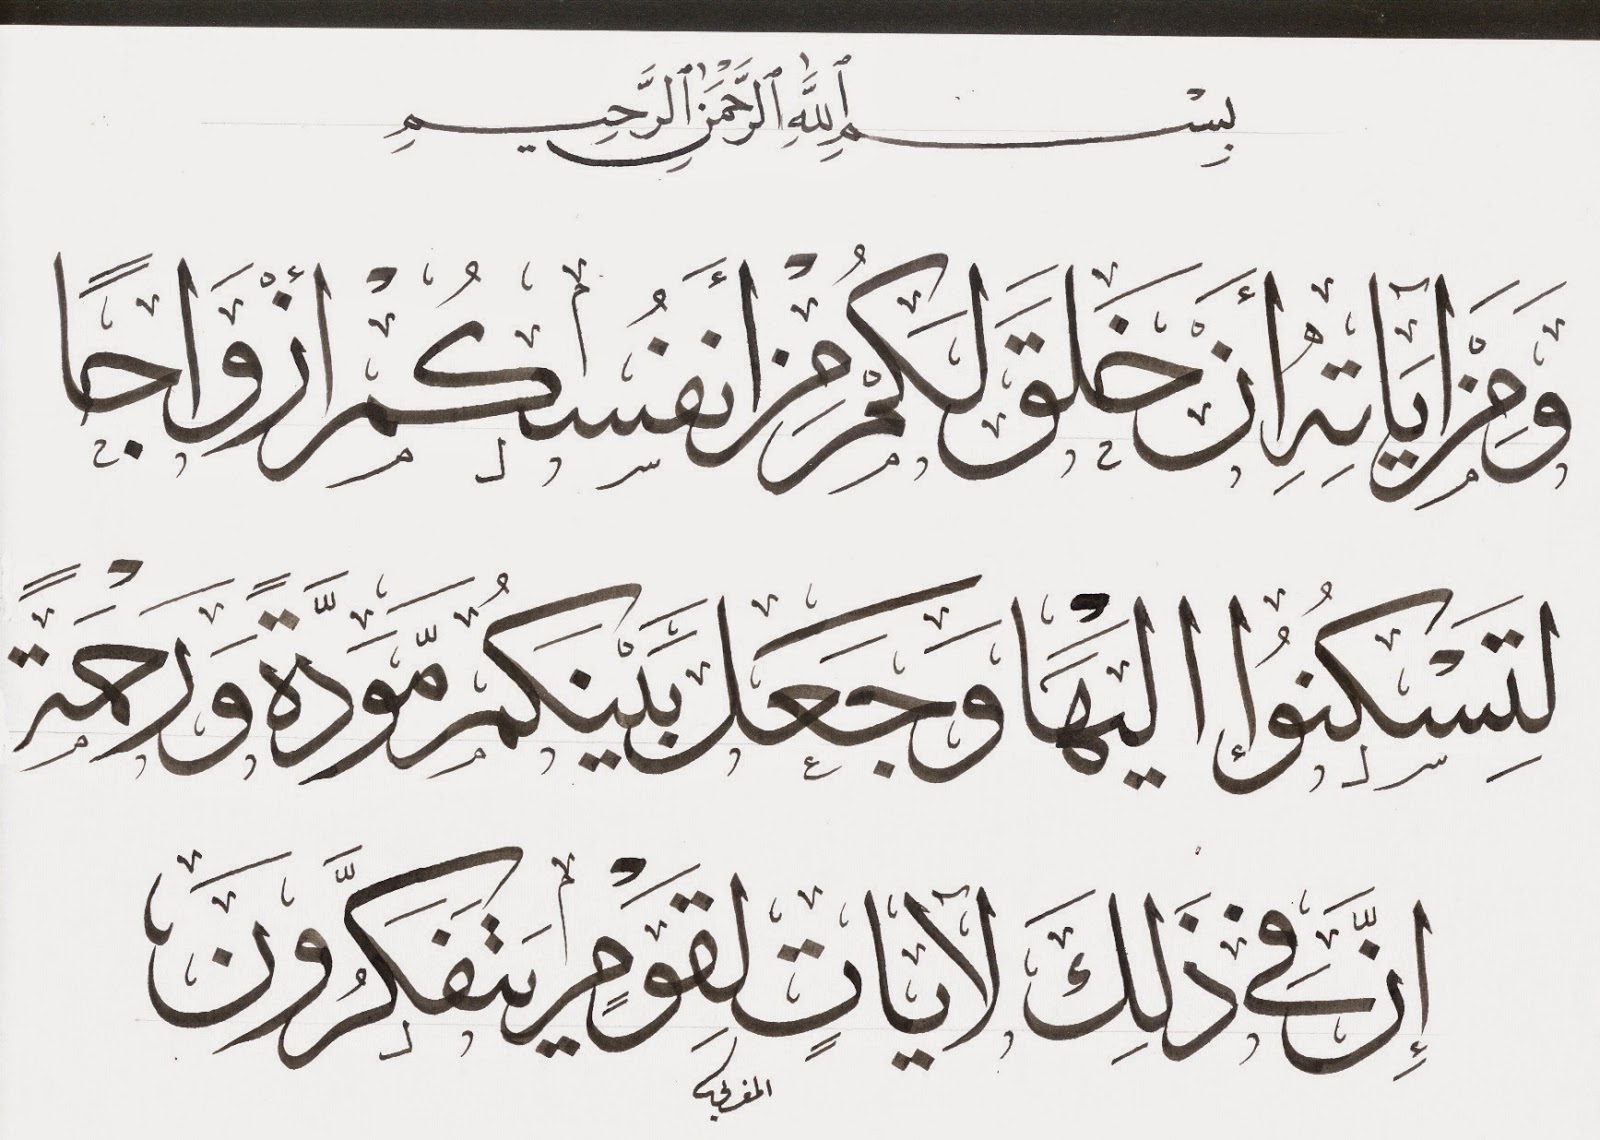 بِسْمِ ٱللَّهِ ٱلرَّحْمَٰنِ ٱلرَّحِيمِ
وَمِنْ آيَاتِهِ أَنْ خَلَقَ لَكُمْ مِنْ أَنفُسِكُمْ أَزْوَاجًا
لِتَسْكُنُوا إِلَيْهَا وَجَعَلَ بَيْنَكُم مَّوَدَّةً وَرَحْمَةً
إِنَّ فِي ذَلِكَ لَآيَاتٍ لِقَوْمٍ يَتَفَكَّرُونَ